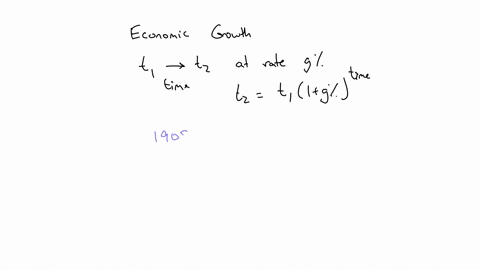 Economic Growth
t₁ → t₂ at rate g%
time
t₂ = t₁ (1+g%)^time
190